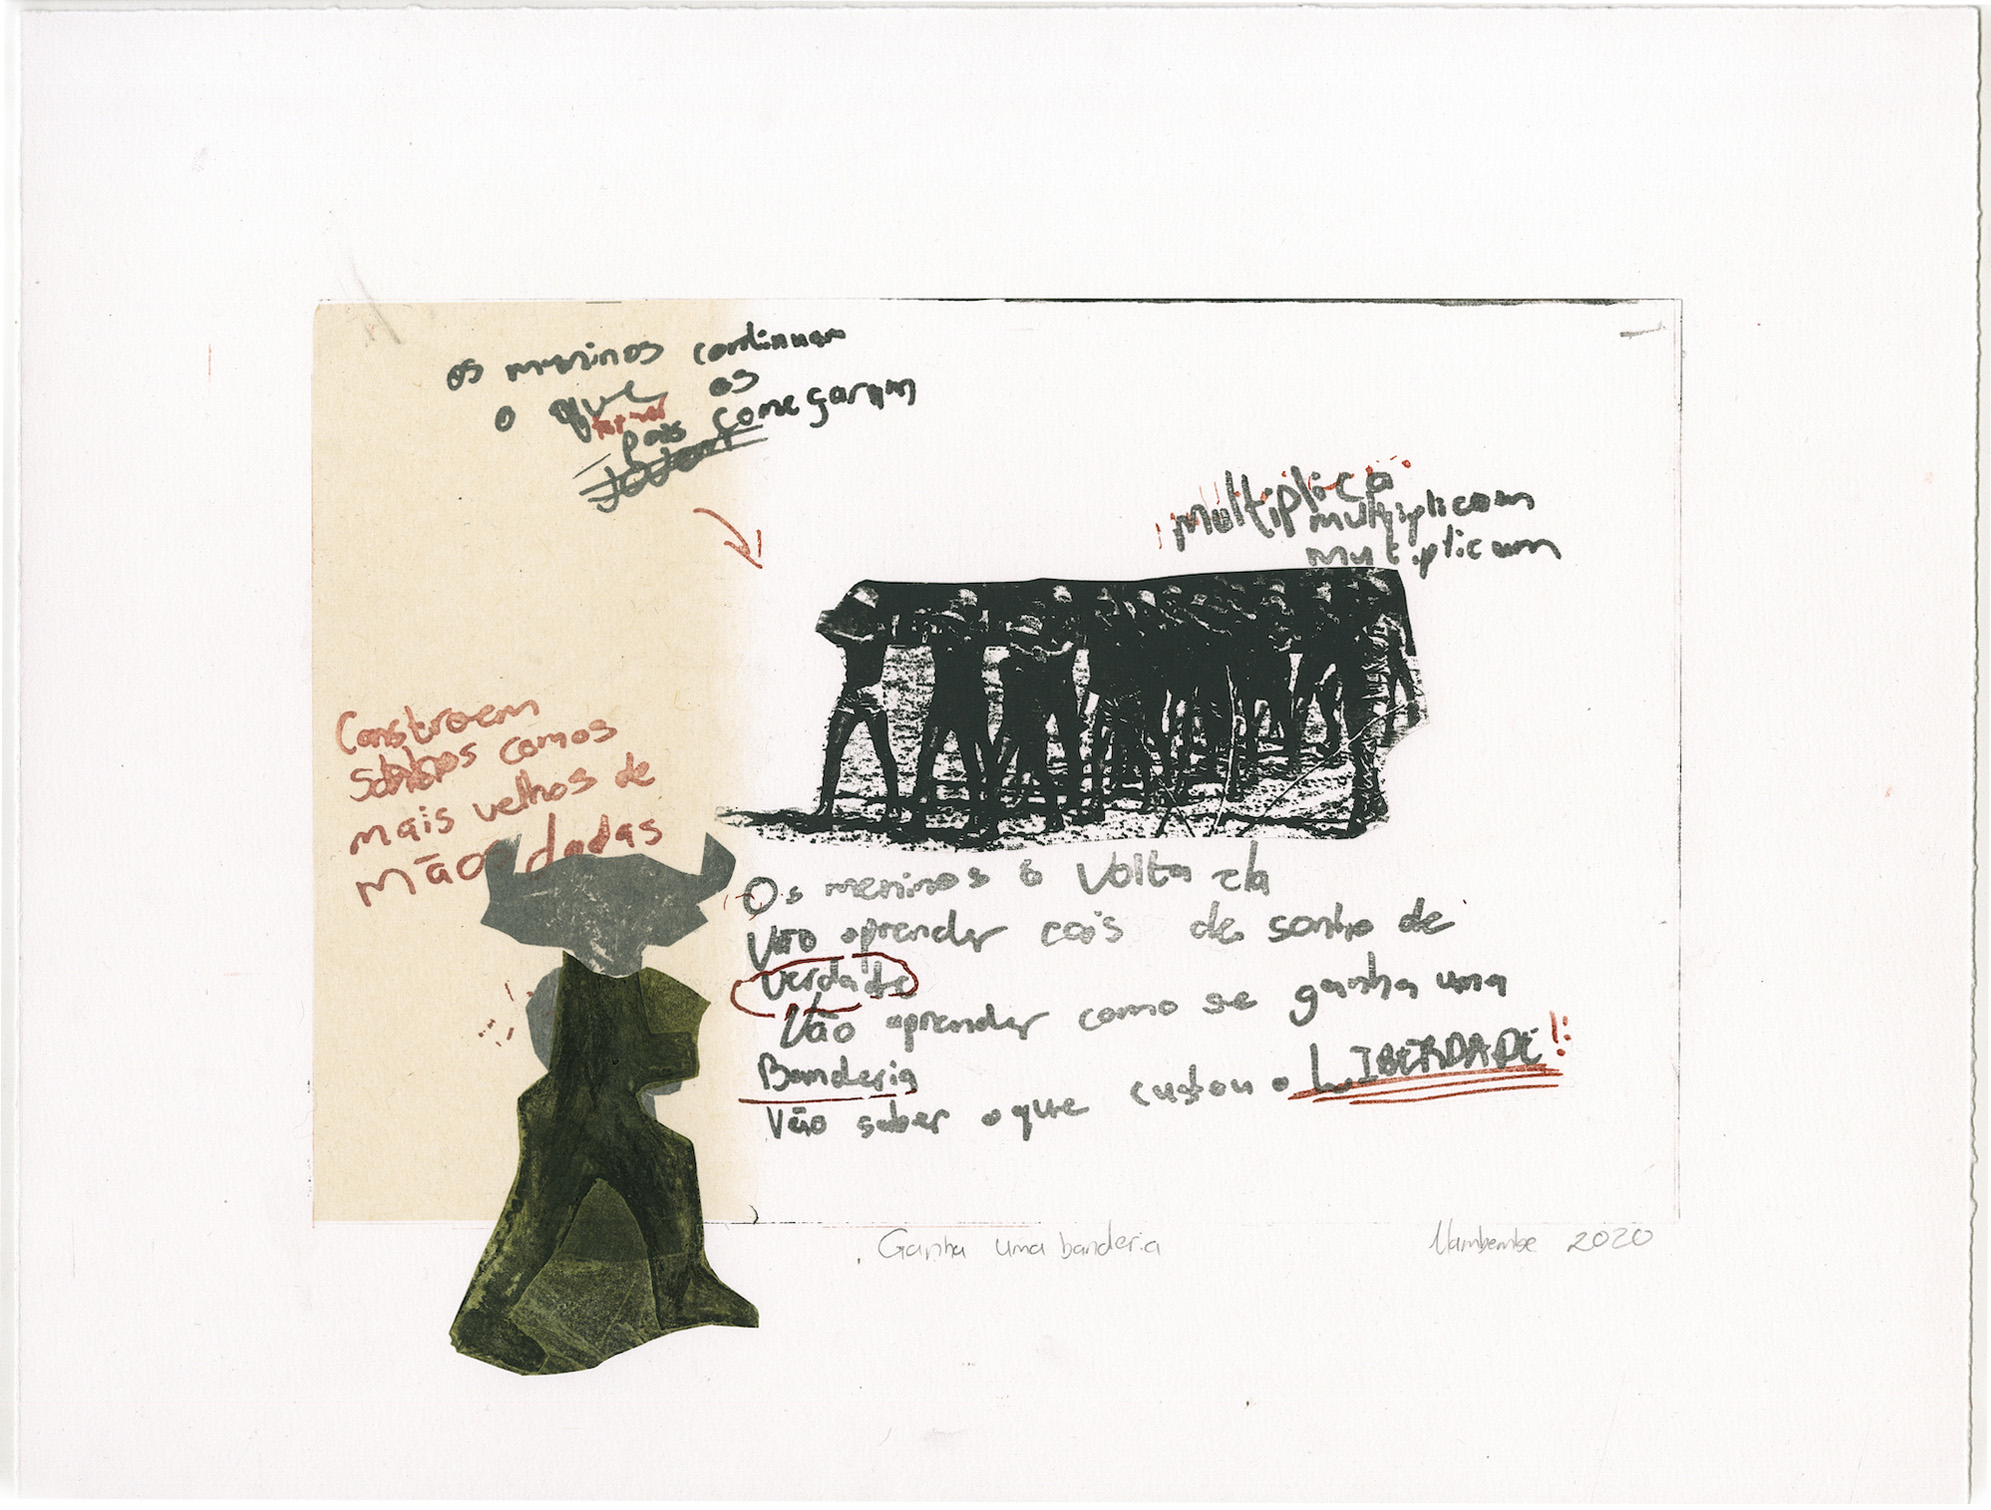 os meninos continuam
o que os
pais começaram
multiplica
multiplicam
multiplicam
Constroem
sonhos comos
mais velhos de
mão dadas
Os meninos à volta da
Vão aprender cois de sonho de
verdade
Vão aprender como se ganha uma
Banderia
Vão saber o que custou a LIBERDADE!!
Ganha uma banderia
Nambembe 2020